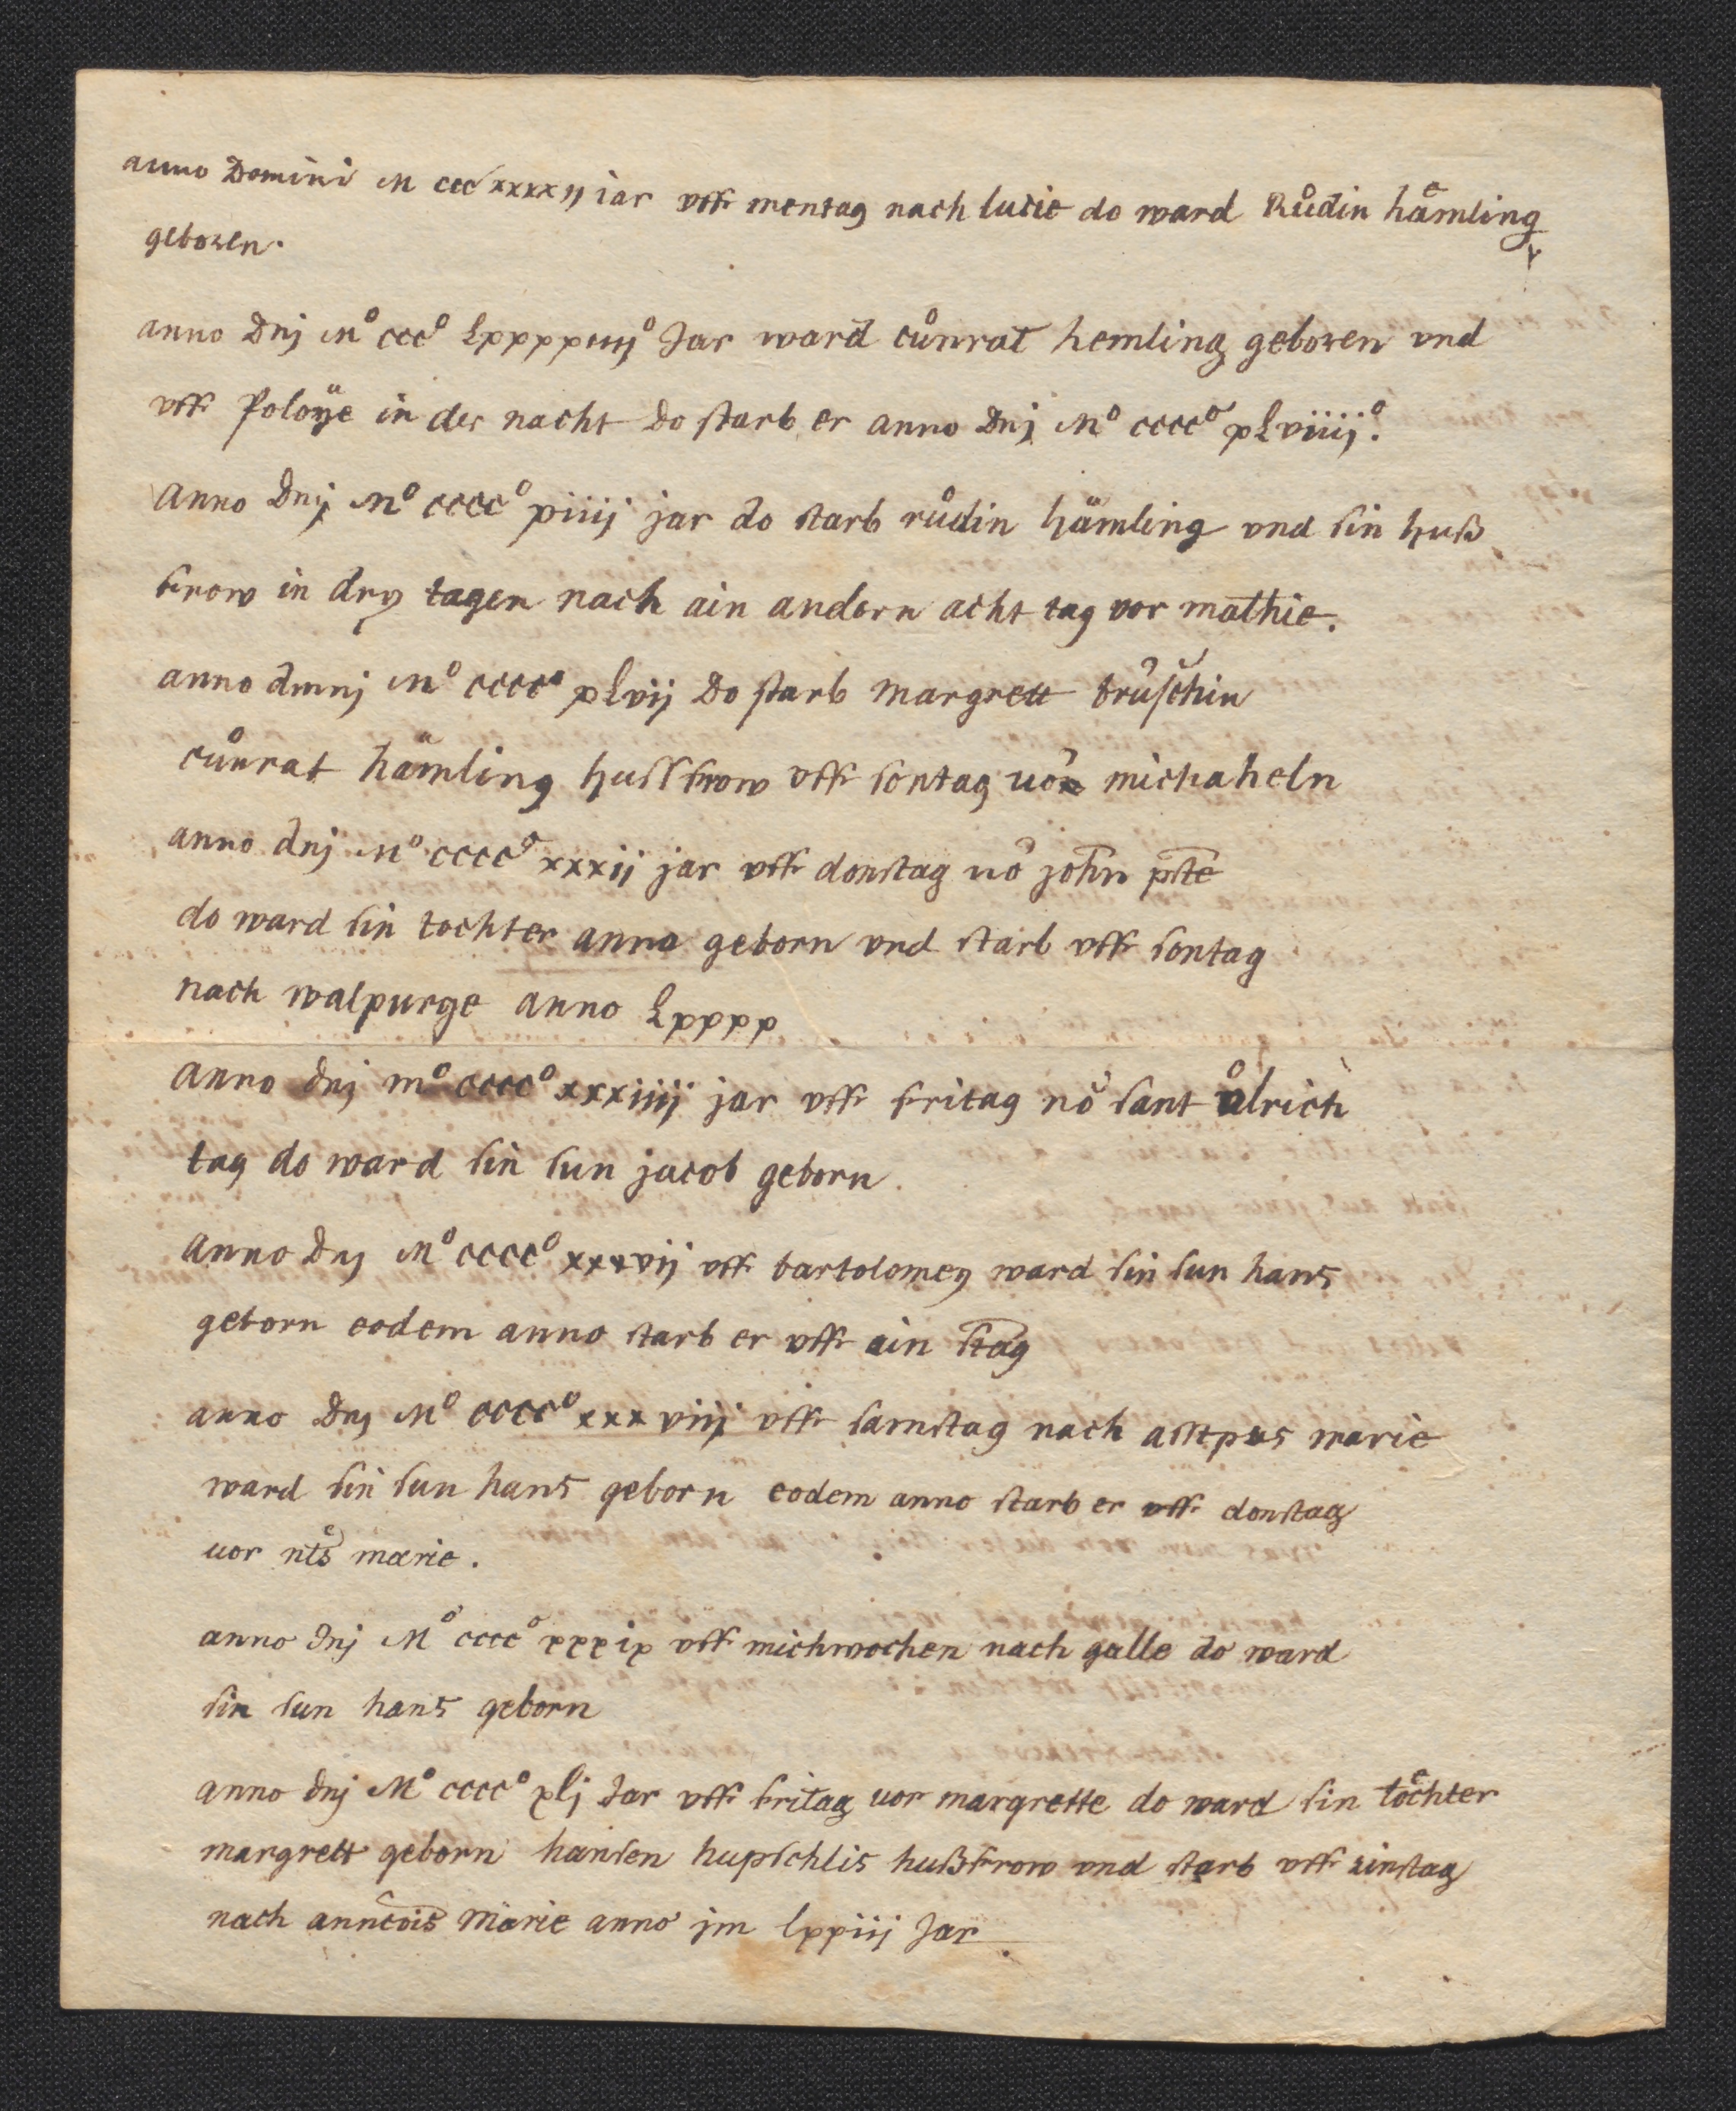 anno Domini M ccc xxxx ij iar vff mentag nach lucie do ward Růdin haͤmling
geboren.
anno Dnj Mͦ cccͦ Lxxxxiiijͦ Jar ward cůnrat hemling geboren vnd
vff Poloÿe in der nacht Do starb er anno Dnj Mͦ ccccͦ xLviiijͦ.
Anno Dnj Mͦ ccccͦ xiiij jar do starb růdin hämling vnd sin huß
frow in dry tagen nach ain andern acht tag vor mathie.
anno dmnj Mͦ ccccͦ xLvij Do starb Margrett brüschin
cůnrat hämling hussfrow vff sontag uor michaheln
anno dnj Mͦ ccccͦ xxxij jar vff donstag uo john pste
do ward sin tochter anna geborn vnd starb vff sontag
nach walpurge anno Lxxxx
Anno dnj mͦ ccccͦ xxxiiij jar vff fritag no sant ůlrich
tag do ward sin sun jacob geborn
Anno Dnj Mͦ ccccͦ xxxvij vff bartolomey ward sin sun hans
geborn eodem anno starb er vff ain stag
anno Dnj Mͦ ccccͦ xxx viij vff samstag nach asstpus marie
ward sin sun hans geborn eodem anno starb er vff donstag
uor nts marie.
anno dnj Mͦ ccccͦ xxxix vff michwochen nach galle do ward
sin sun hans geborn
anno dnj Mͦ ccccͦ xlj Jar vff fritag uor margrette do ward sin toͤchter
margrett geborn hansen hupschlis hußfrow vnd starb vff zinstag
nach anncois Marie anno jm lxxiij Jar